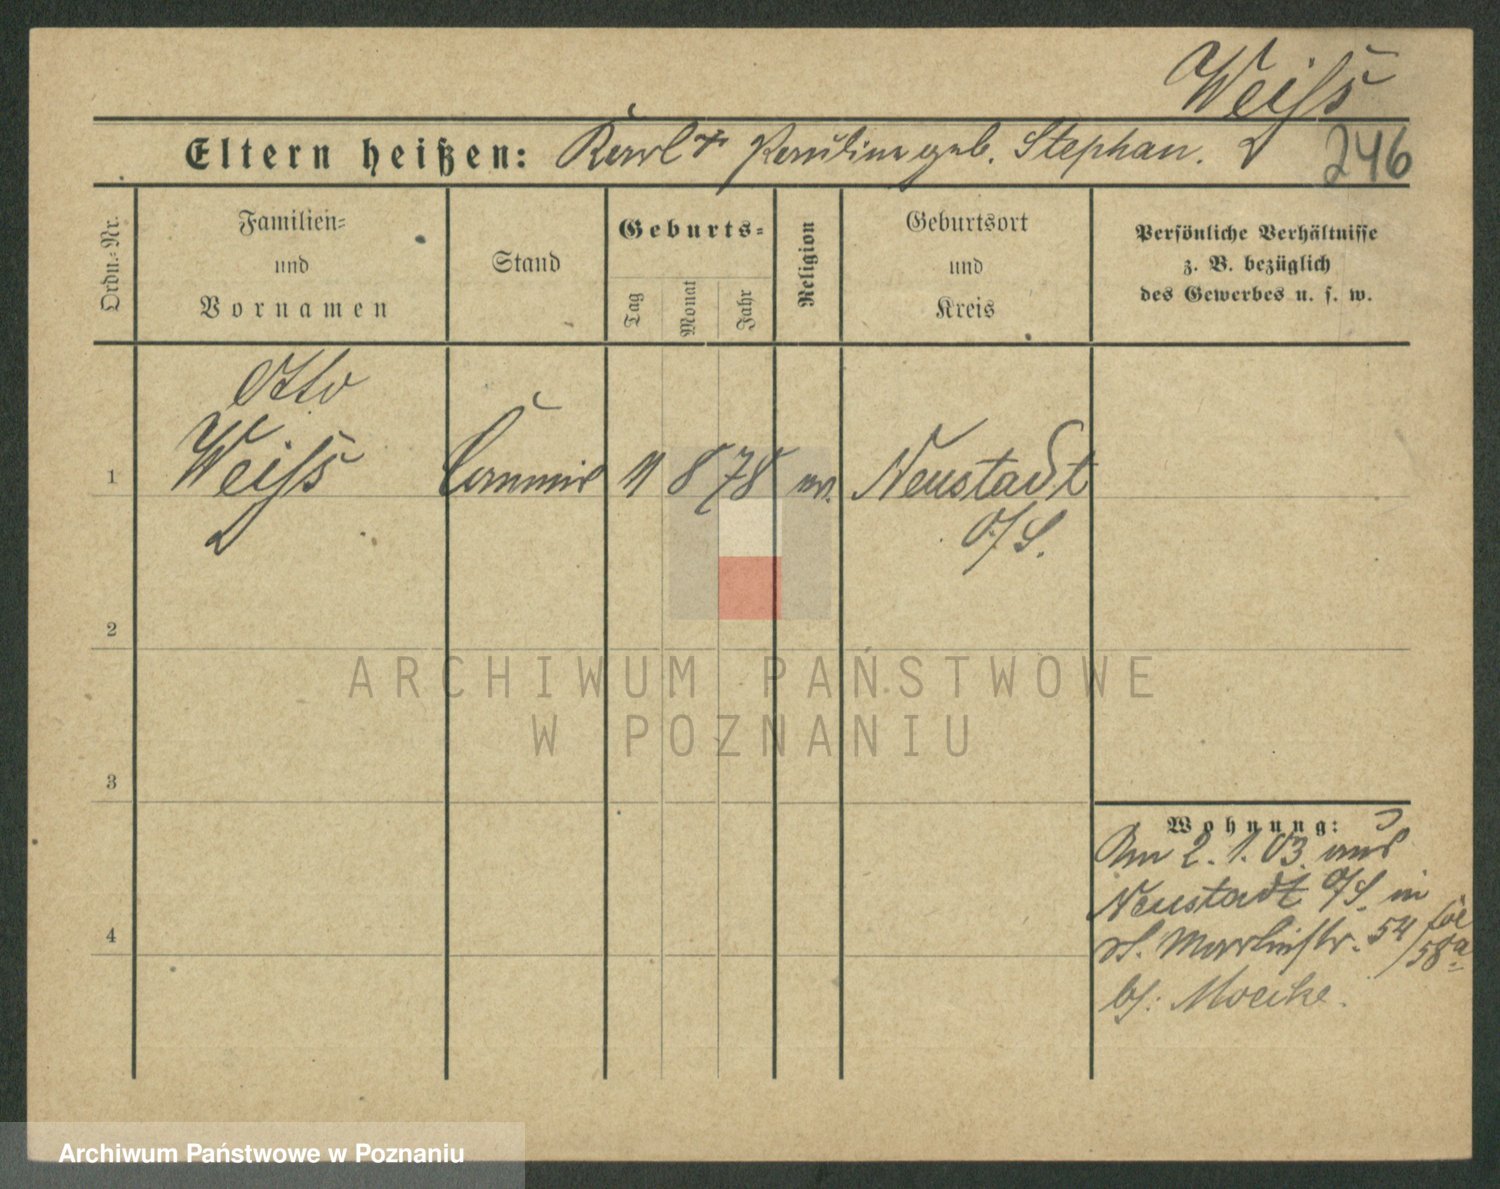 Weiſs
Eltern heißen: Karl + Pauline geb. Stephan.
246
Ordn.-Nr.
Familien-
und
Vornamen
Stand
Geburts-
Tag
Monat
Jahr
Religion
Geburtsort
und
Kreis
Persönliche Verhältnisse
z. B. bezüglich
des Gewerbes u. s. w.
Otto
1 Weiſs Commis 11 8 78 ev. Neustadt
O/S.
2
3
4
Wohnung:
Am 2. 1. 03. aus
Neustadt O/S. in
St. Martinstr. 54
58a
bſ:
ARCHIWUM PAŃSTWOWE
W POZNANIU
Archiwum Państwowe w Poznaniu